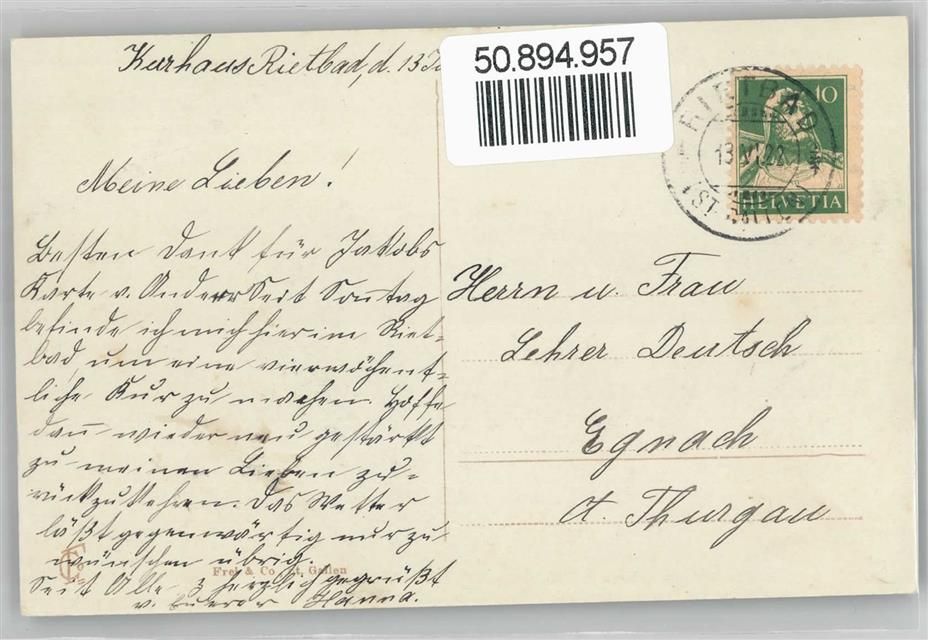 Kurhaus Rietbad, d. 13
50.894.957
RIETBAD
13.VI.22
(ST. GALLEN)
10
HELVETIA
Meine Lieben!
Besten Dank für Jakobs
Karte v. Seit Sonntag
befinde ich mich hier im Riet-
bad, um eine vierwöchent-
liche Kur zu machen. Hoffe
dann wieder neu gestärkt
zu meinen Lieben zu-
rückzukehren. Das Wetter
läßt gegenwärtig nur zu
wünschen übrig.
Seit Alle herzlich gegrüßt
v. Eurer Hanna.
Herrn u. Frau
Lehrer Deutsch
Egnach
Kt. Thurgau
Frei & Co St. Gallen